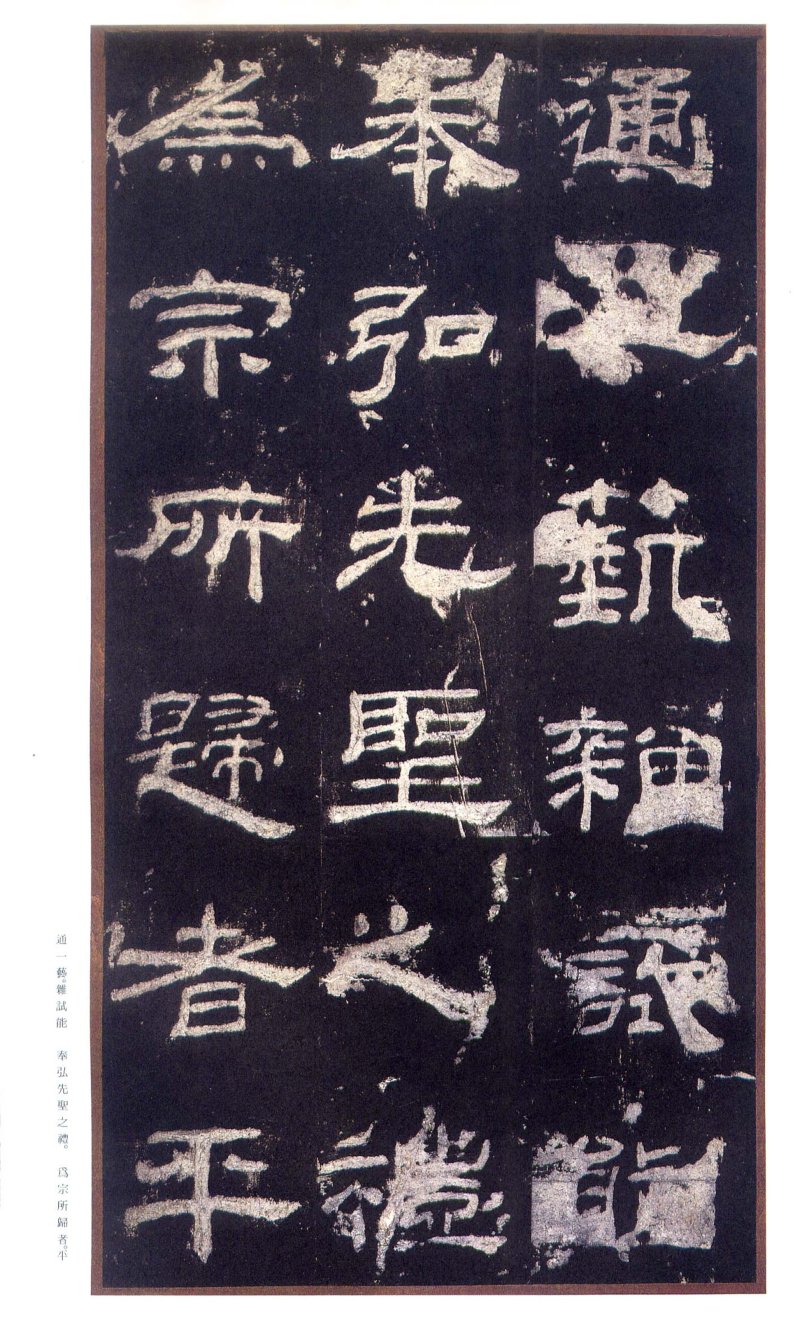 通一藝雜試能
奉弘先聖之禮
為宗所歸者平
通一藝。雜試能 奉弘先聖之禮。 爲宗所歸者。平